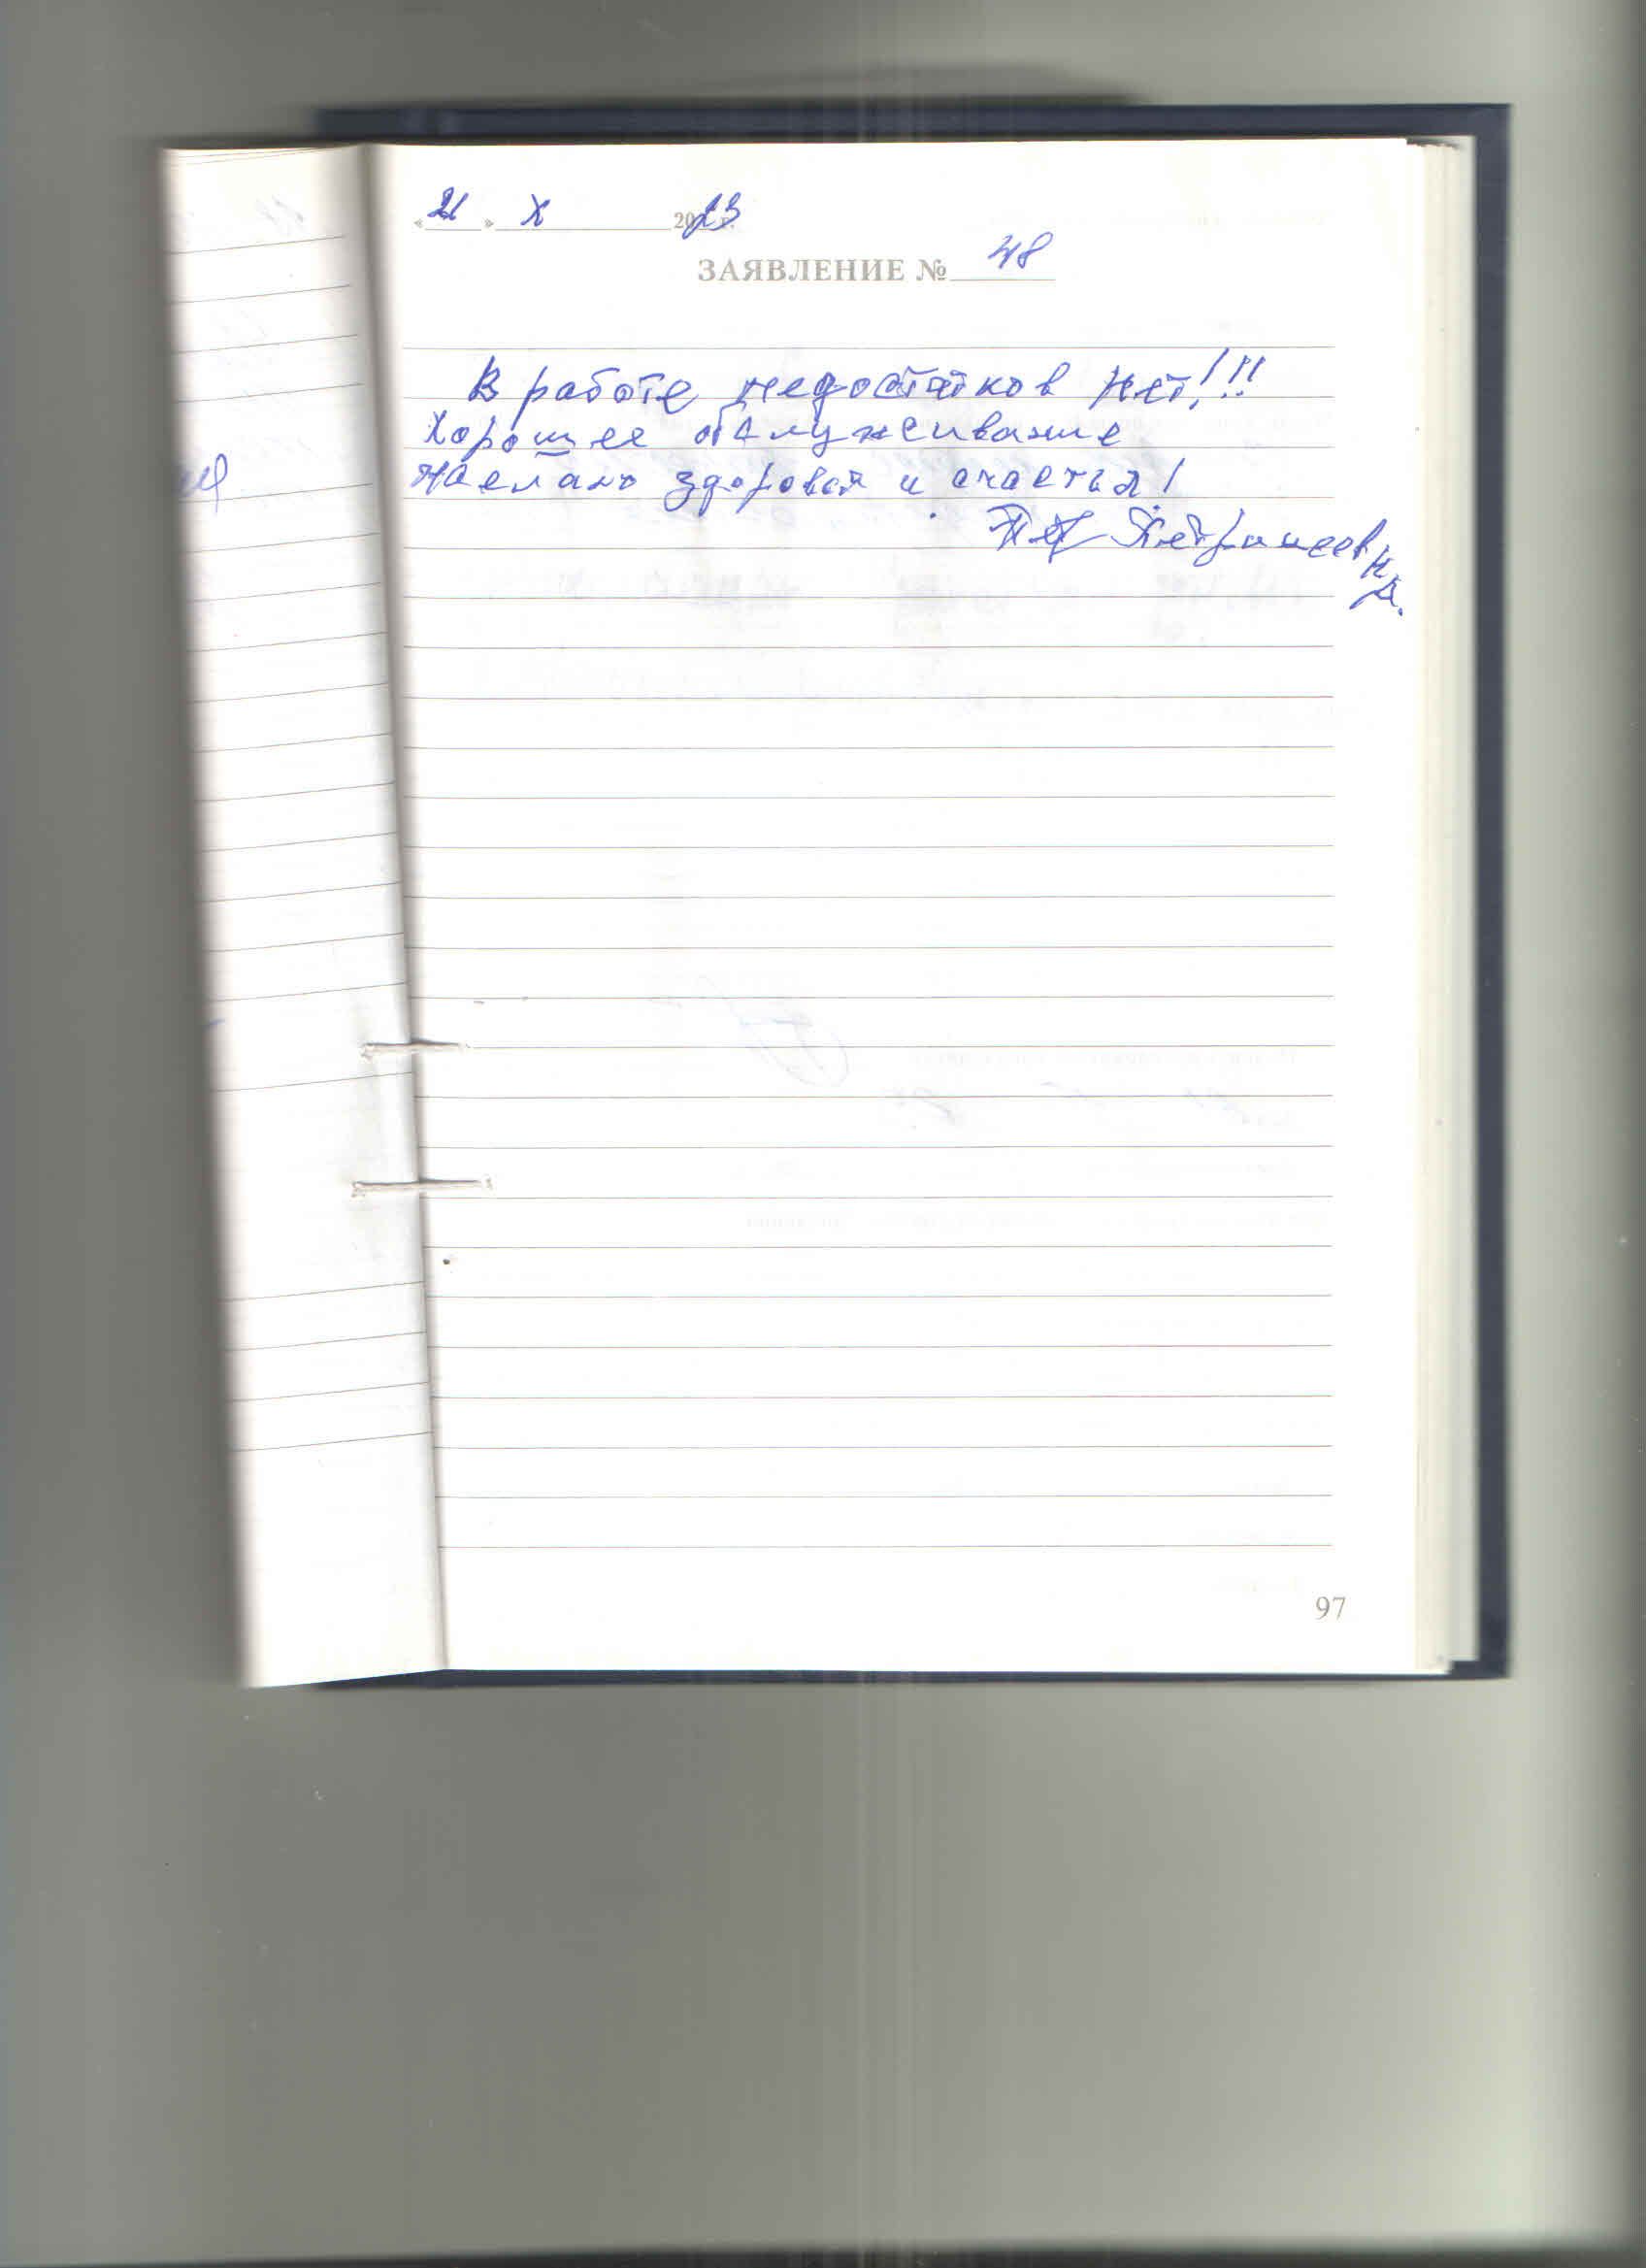 « 21 » X 2023 г.
ЗАЯВЛЕНИЕ № 48
В работе недостатков нет!!!
Хорошее обслуживание
Желаю здоровья и счастья!
97